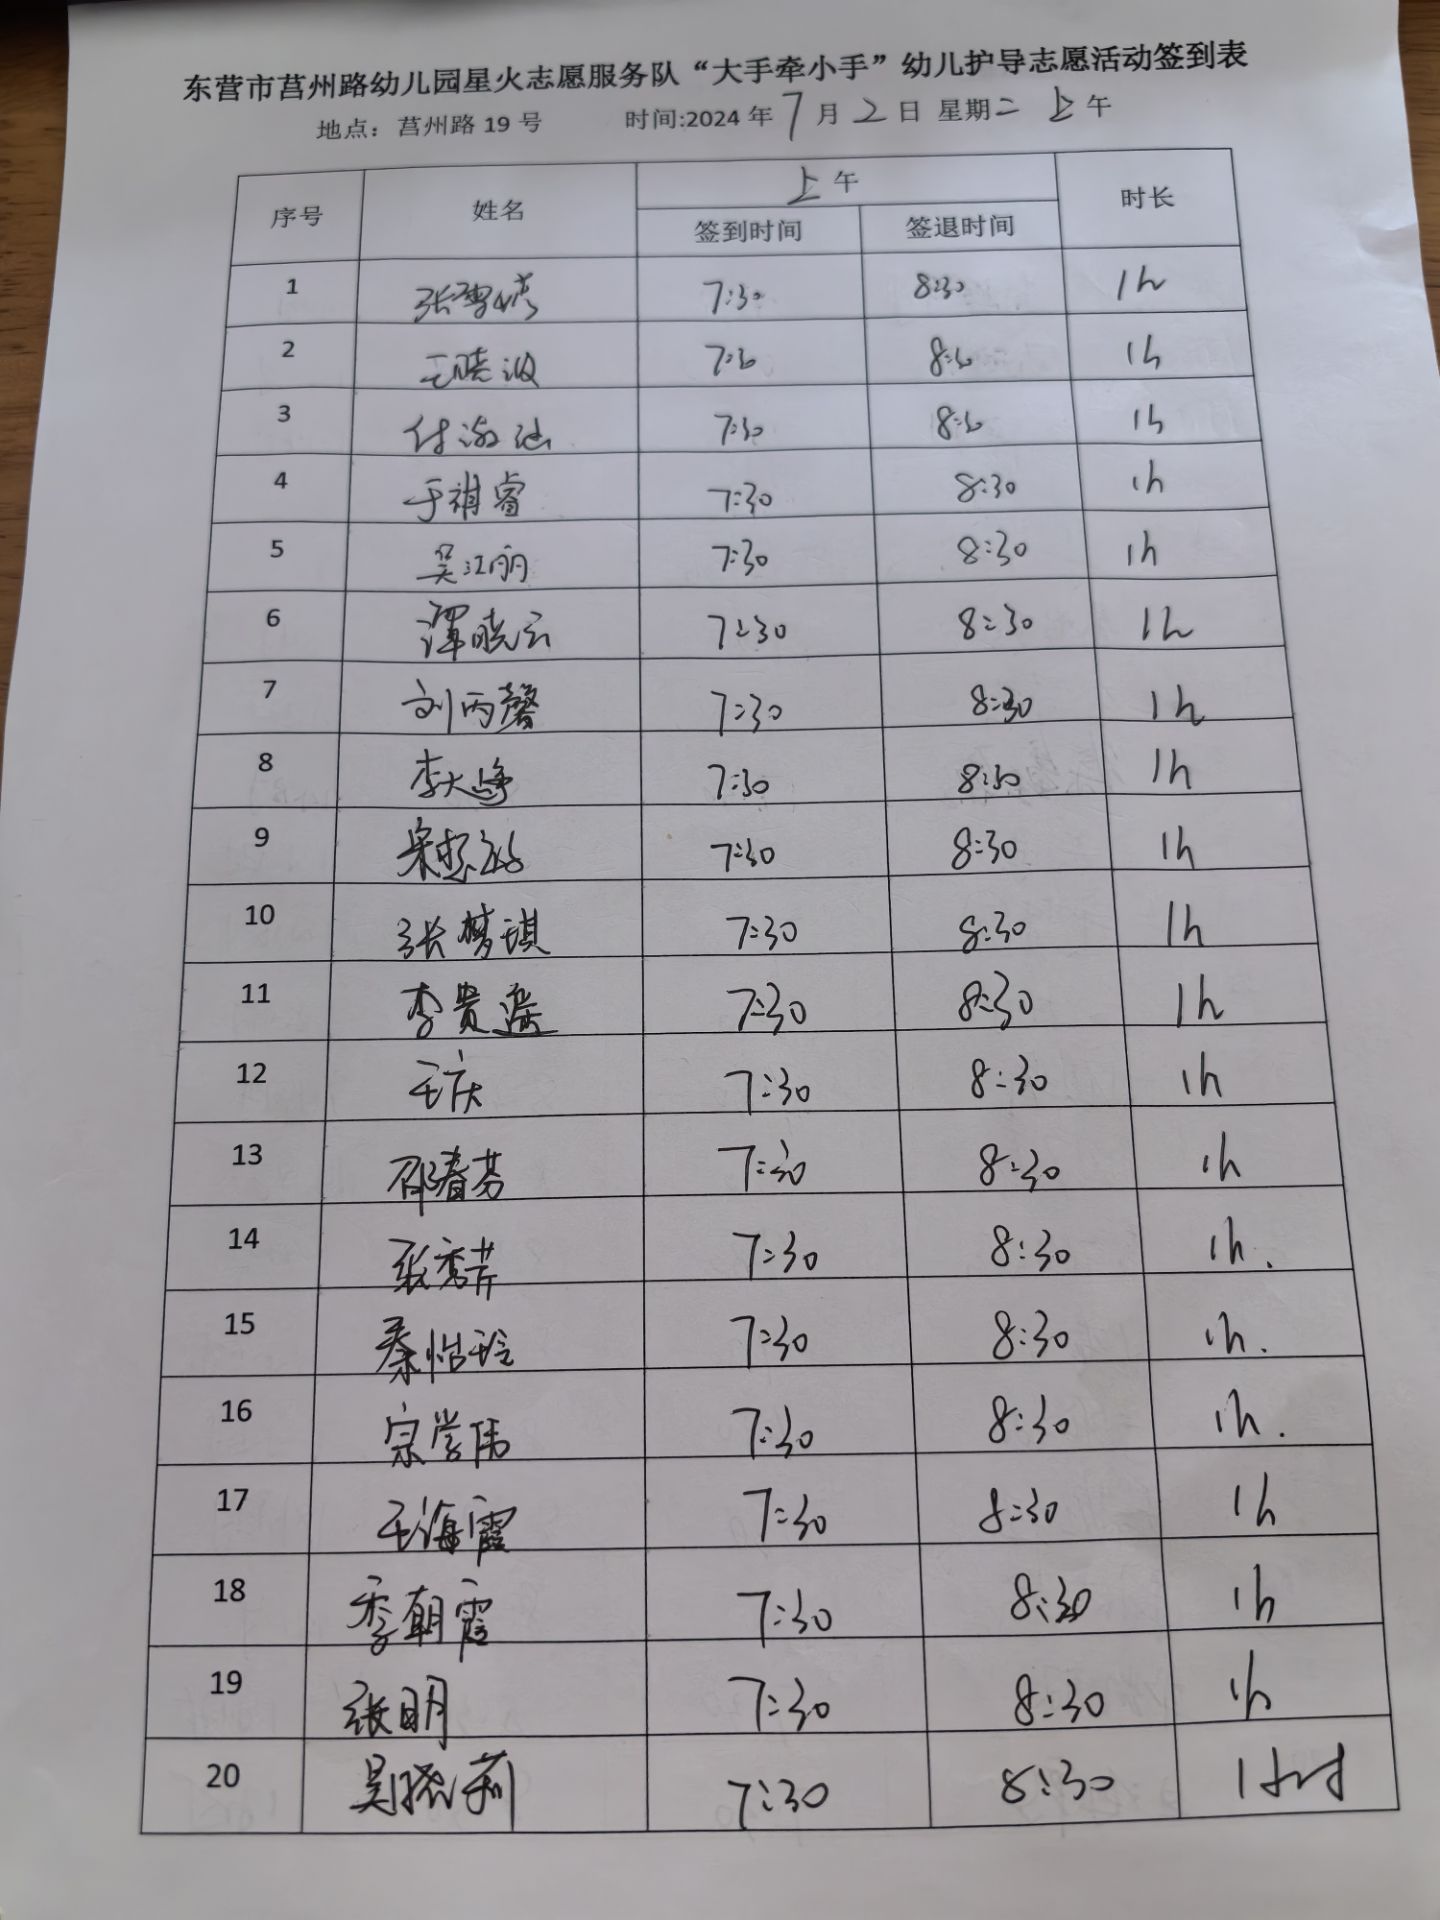 东营市莒州路幼儿园星火志愿服务队“大手牵小手”幼儿护导志愿活动签到表
地点：莒州路 19 号 时间:2024 年 7 月 2 日 星期二 上午
序号 姓名 上午 时长
签到时间 签退时间
1 7:30 8:30 1h
2 王晓波 7:30 8:30 1h
3 7:30 8:30 1h
4 于祺睿 7:30 8:30 1h
5 吴江丽 7:30 8:30 1h
6 谭晓云 7:30 8:30 1h
7 刘丙馨 7:30 8:30 1h
8 李大峰 7:30 8:30 1h
9 7:30 8:30 1h
10 张梦琪 7:30 8:30 1h
11 李贵 7:30 8:30 1h
12 王庆 7:30 8:30 1h
13 邵春芬 7:30 8:30 1h
14 张秀芹 7:30 8:30 1h.
15 秦怡玲 7:30 8:30 1h.
16 宗学伟 7:30 8:30 1h.
17 王海霞 7:30 8:30 1h
18 李朝霞 7:30 8:30 1h
19 张明 7:30 8:30 1h
20 吴晓莉 7:30 8:30 1小时